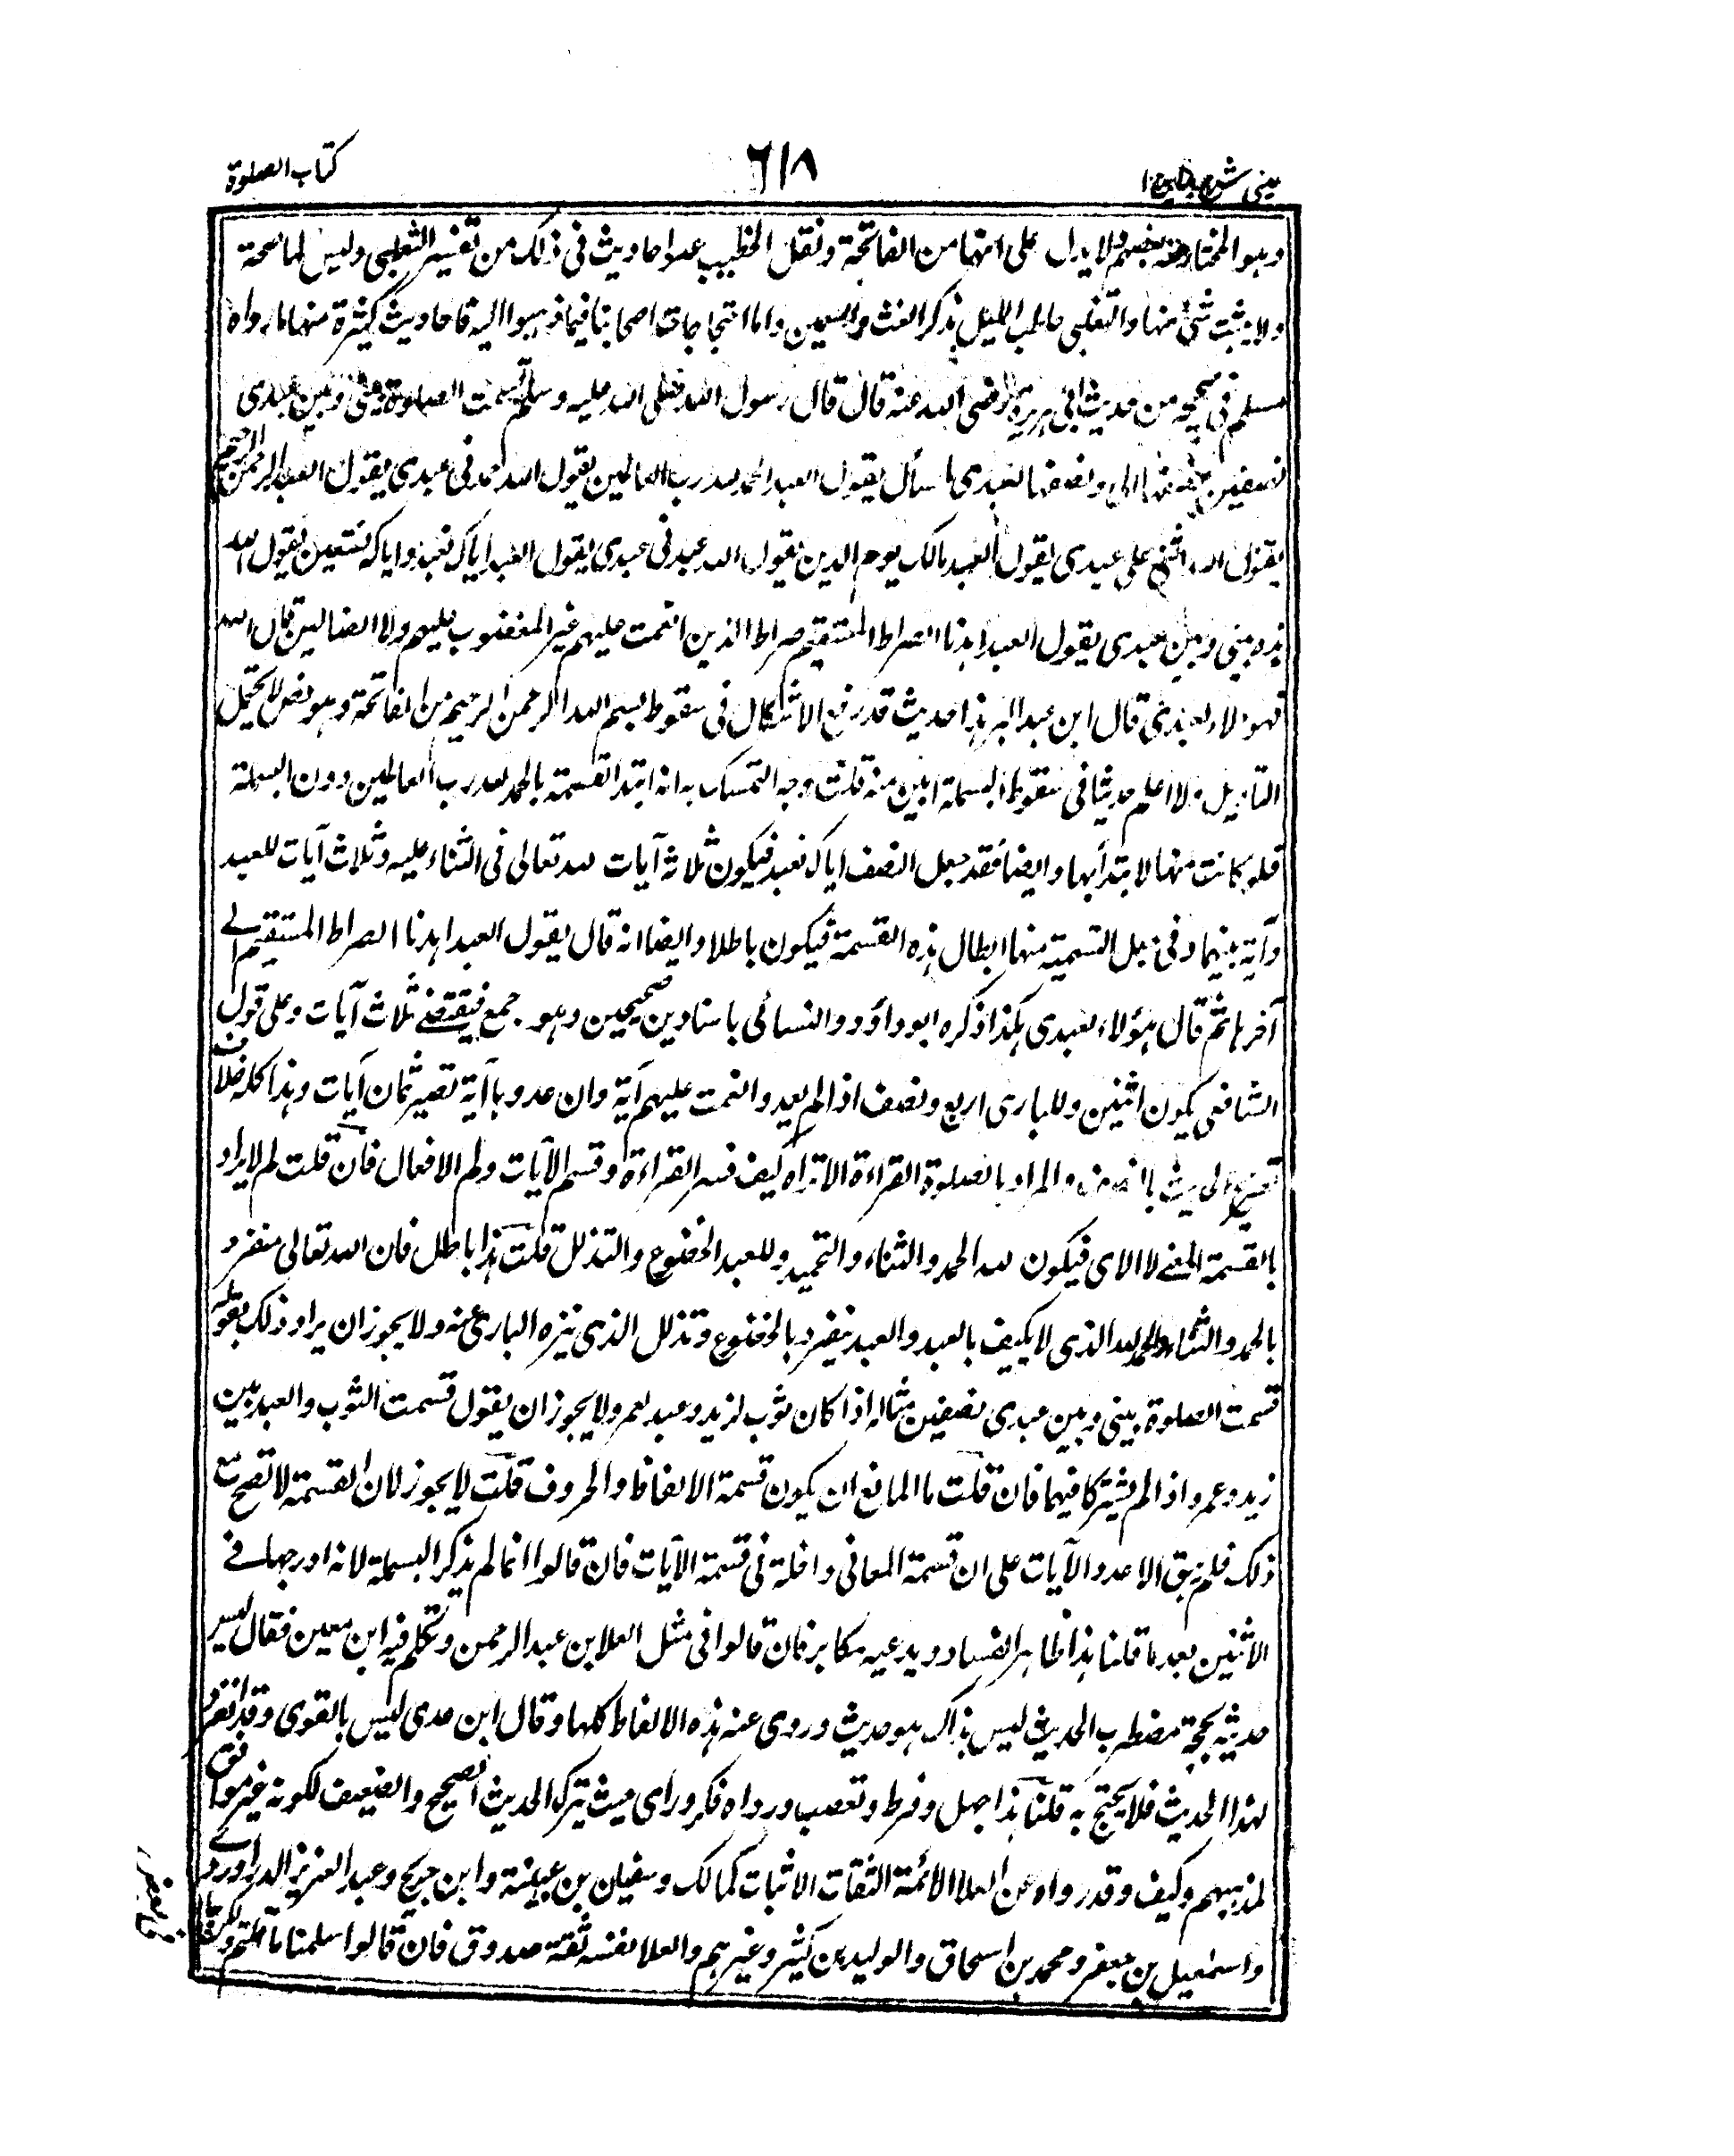 عينى شرح هداية ج١
٦١٨
كتاب الصلوة
وهو المختار عند بعضهم ولا يدل على انها من الفاتحة ونقل الخطيب عدة احاديث فى ذلك من تفسير الثعلبى وليس لها صحة
ولا يثبت شئ منها والثعلبى حاطب الليل يذكر الغث والسمين واما احتجاجات اصحابنا فيما ذهبوا اليه فاحاديث كثيرة منها ما رواه
مسلم فى صحيحه من حديث ابى هريرة رضى الله عنه قال قال رسول الله صلى الله عليه وسلم قسمت الصلوة بينى وبين عبدى
نصفين نصفها لى ونصفها لعبدى ما سأل يقول العبد الحمد لله رب العالمين يقول الله حمدنى عبدى يقول العبد الرحمن الرحيم
يقول الله اثنى على عبدى يقول العبد مالك يوم الدين يقول الله عبدنى عبدى يقول العبد اياك نعبد واياك نستعين يقول الله
هذه بينى وبين عبدى يقول العبد اهدنا الصراط المستقيم صراط الذين انعمت عليهم غير المغضوب عليهم ولا الضالين قال الله
فهؤلاء لعبدى قال ابن عبد البر هذا حديث قد رفع الاشكال فى سقوط بسم الله الرحمن الرحيم من الفاتحة وهو نص لا يحتمل
التاويل ولا اعلم حديثا فى سقوط البسملة ابين منه قلت وجه التمسك به انه ابتدا القسمة بالحمد لله رب العالمين دون البسملة
فلو كانت منها لابتدأ بها وايضا فقد جعل النصف اياك نعبد فيكون ثلاثه آيات لله تعالى فى الثناء عليه وثلاث آيات للعبد
وآية بينهما وفى جعل التسمية منها ابطال هذه القسمة فيكون باطلا وايضا انه قال يقول العبد اهدنا الصراط المستقيم الى
آخرها ثم قال هؤلاء لعبدى هكذا ذكره ابو داؤد والنسائى باسنادين صحيحين وهو جمع فيقتضى ثلاث آيات وعلى قول
الشافعى يكون اثنين وللبارى اربع ونصف اذا لم يعدوا انعمت عليهم آية وان عدوها آية تصير ثمان آيات وهذا كله خلاف
تصريح الحديث بالنصف والمراد بالصلوة القراءة الا تراه كيف فسر القراءة وقسم الآيات ولم الافعال فان قلت لم لا يراد
بالقسمة المعنى لا الاى فيكون لله الحمد والثناء والتحميد وللعبد الخضوع والتذلل قلت هذا باطل فان الله تعالى منفرد
بالحمد والثناء والحمد لله الذى لا يكيف بالعبد والعبد ينفرد بالخضوع وتذلل الذى ينزه البارى عنه ولا يجوز ان يراد ذلك بقوله
قسمت الصلوة بينى وبين عبدى نصفين مثاله اذا كان ثوب لزيد وعبد لعمرو لا يجوز ان يقول قسمت الثوب والعبد بين
زيد وعمرو اذا لم يشتركا فيهما فان قلت ما المانع ان يكون قسمة الالفاظ والحروف قلت لا يجوز لان القسمة لا تصح مع
ذلك فلم يبق الا عدد الآيات على ان قسمة المعانى داخلة فى قسمة الآيات فان قالوا انما لم يذكر البسملة لانه ادرجها فى
الاثنين بعدها قلنا هذا ظاهر الفساد ويدعيه مكابر فان قالوا فى مثل العلا بن عبد الرحمن وتكلم فيه ابن معين فقال ليس
حديثه بحجة مضطرب الحديث ليس بذاك هو حديث وروى عنه هذه الالفاظ كلها وقال ابن عدى ليس بالقوى وقد انفرد
بهذا الحديث فلا يحتج به قلنا هذا جهل وفرط وتعصب ورداه فكر وراى حيث يترك الحديث الصحيح والضعيف لكونه غير موافق
لمذهبهم وكيف وقد رواه عن العلا الائمة الثقات الاثبات كمالك وسفيان بن عيينة وابن جريج وعبد العزيز الدراوردى
واسمعيل بن جعفر ومحمد بن اسحاق والوليد بن كثير وغيرهم والعلا نفسه ثقة صدوق فان قالوا سلمنا ما قلتم ولكن